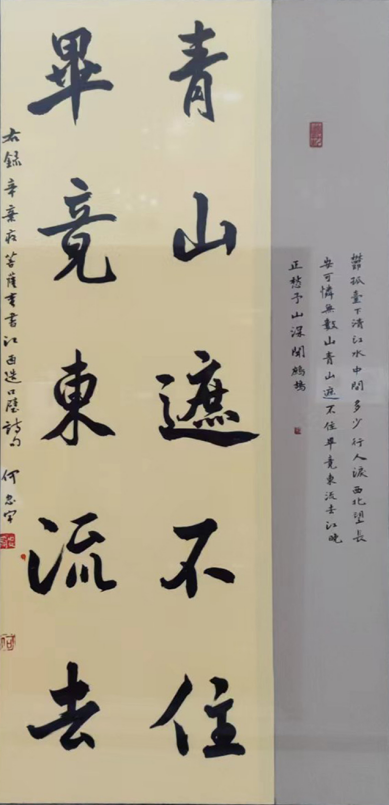 鬱孤臺下清江水中間多少行人淚西北望長
安可憐無數山青山遮不住畢竟東流去江晚
正愁予山深聞鷓鴣
青山遮不住
畢竟東流去
右錄辛棄疾菩薩蠻書江西造口壁詩句 何忠